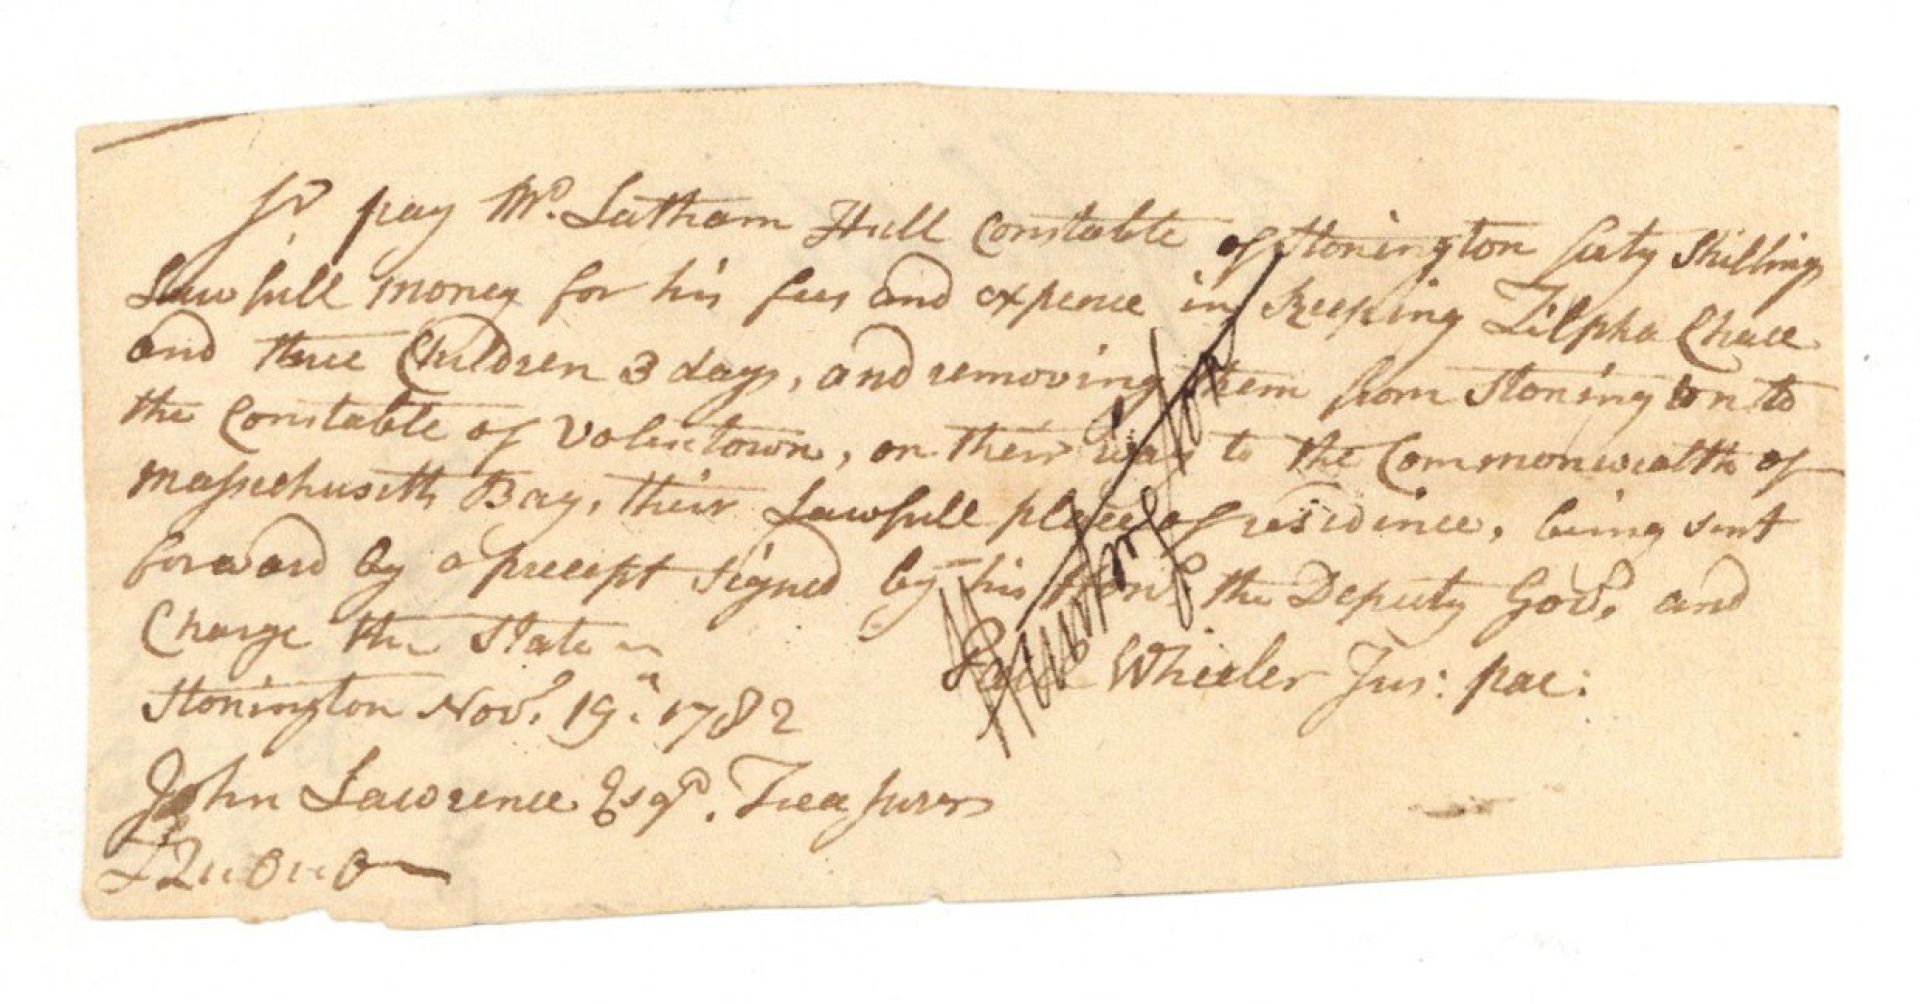 Sr pay Mr. Latham Hull Constable of Stonington forty Shillings
Lawfull money for his fees and expence in Keeping Zilpha Chace
and three Children 3 days, and removing them from Stonington to
the Constable of Voluntown, on their way to the Commonwealth of
Massachusetts Bay, their Lawfull place of residence, being sent
forward by a precept signed by his Honr. the Deputy Govr. and
Charge the State
Stonington Novr. 19th. 1782
Paul Wheeler Jus: pac:
John Lawrence Esqr. Treasurer
£2 " 0 " 0
Huntington